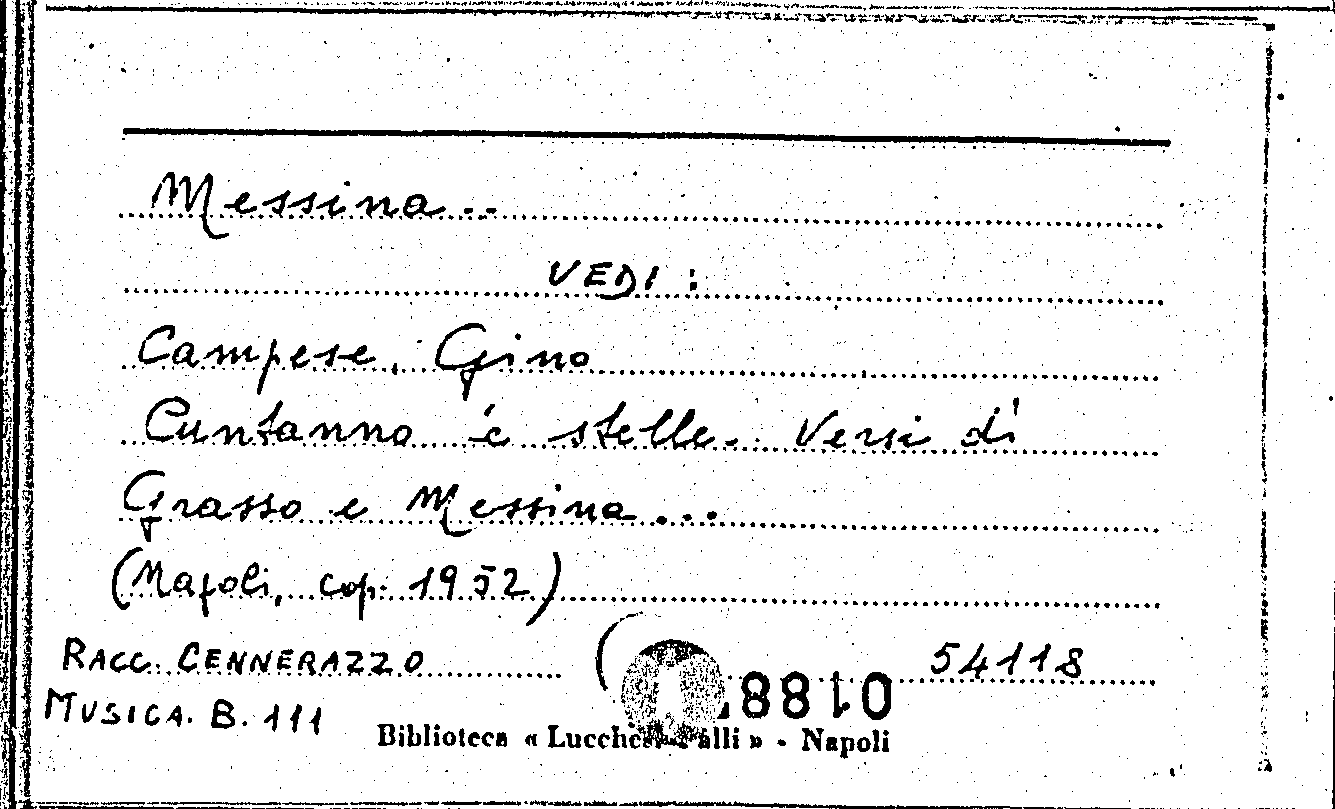 Messina...
VEDI:
Campese, Gino
Cuntanno 'e stelle. Versi di
Grasso e Messina...
(Napoli, cop. 1952)
RACC. CENNERAZZO
54118
MUSICA. B. 111
Biblioteca « Lucchesi Palli » - Napoli